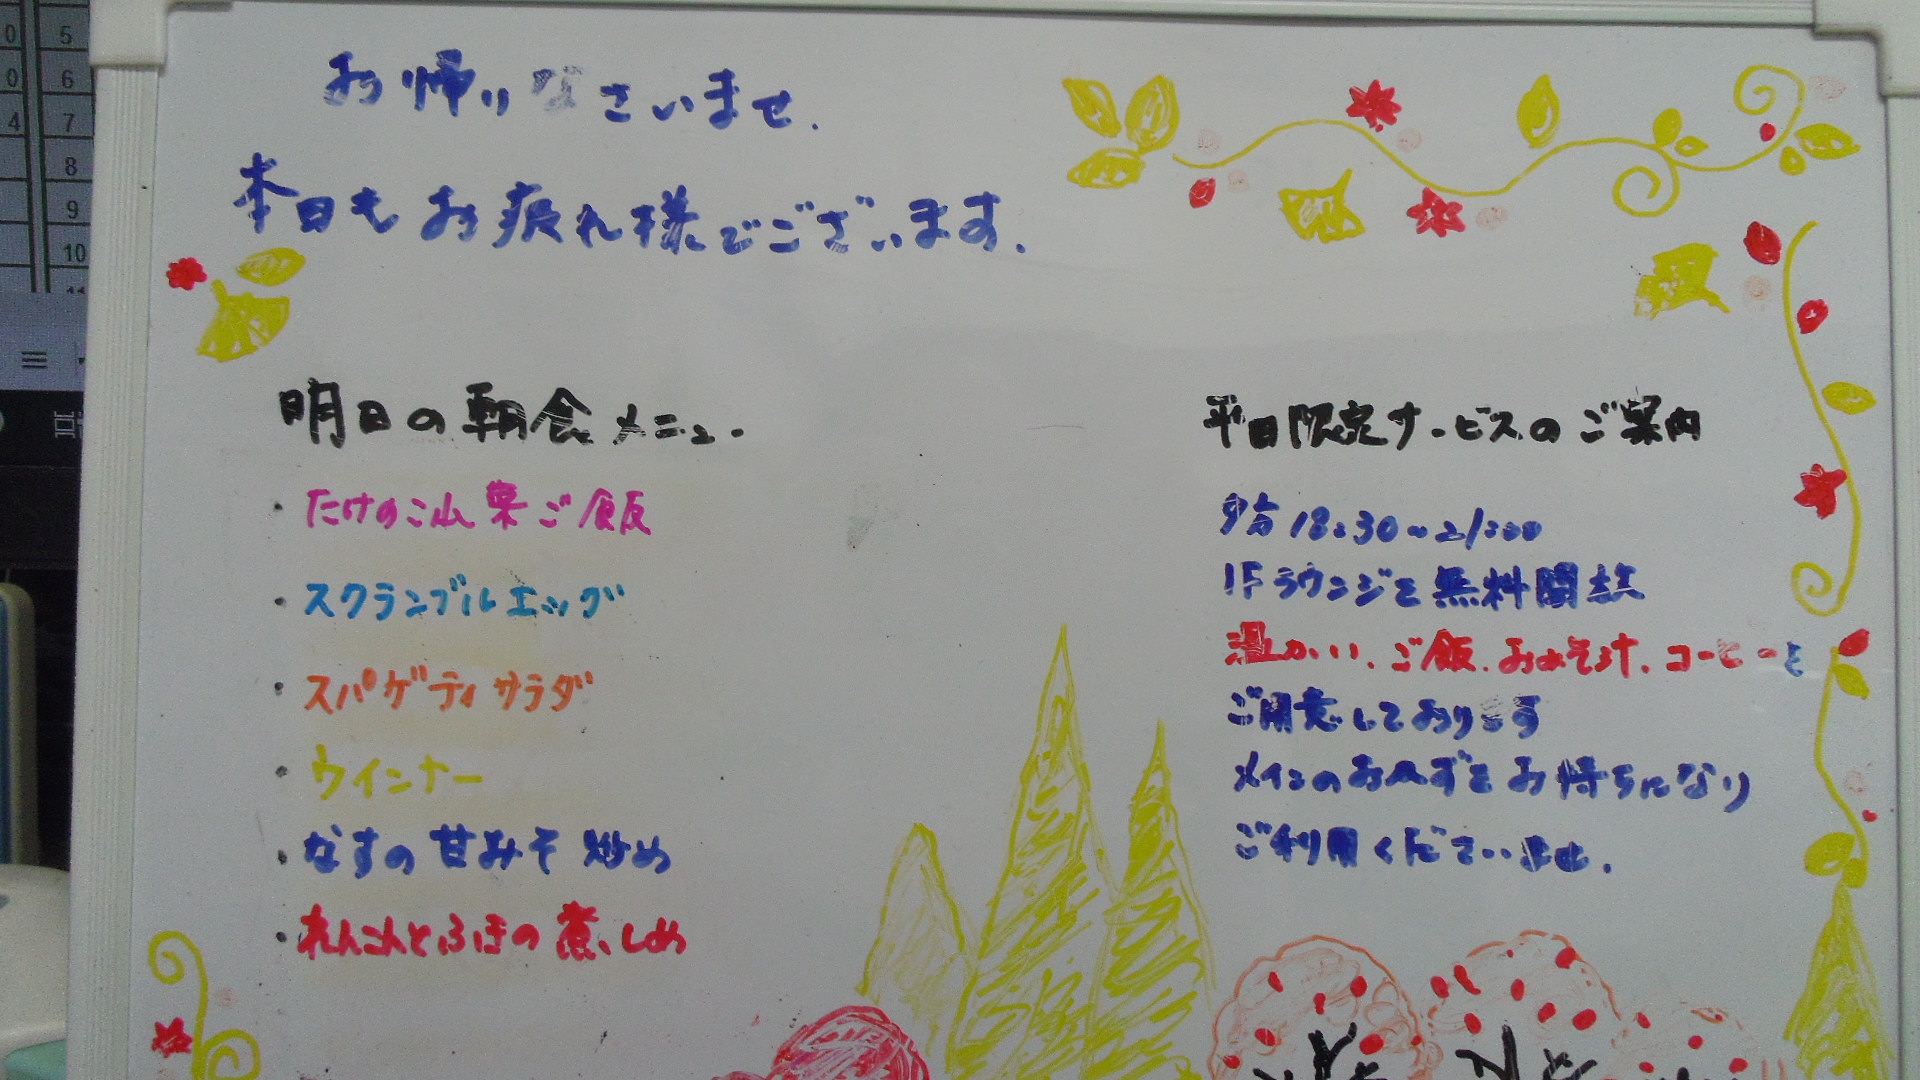 お帰りなさいませ.
本日もお疲れ様でございます.
明日の朝食メニュー.
・たけのこ山菜ご飯
・スクランブルエッグ
・スパゲティサラダ
・ウインナー
・なすの甘みそ炒め
・れんこんとふきの煮しめ
平日限定サービスのご案内
夕方18:30~21:00
1Fラウンジを無料開放
温かい、ご飯、おみそ汁、コーヒーを
ご用意しております
メインのおかずをお持ちになり
ご利用くださいませ.
0 5
0 6
4 7
8
9
10
11